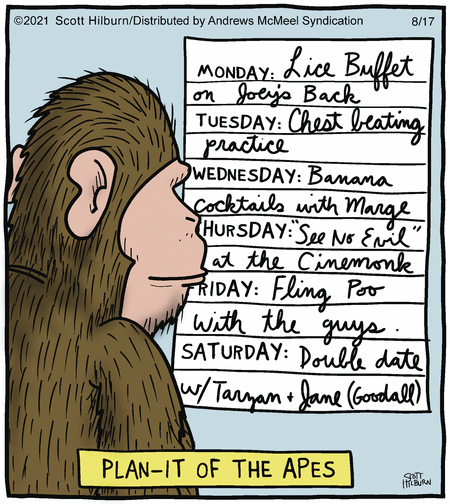 ©2021 Scott Hilburn/Distributed by Andrews McMeel Syndication 8/17
MONDAY: Lice Buffet
on Joey's Back
TUESDAY: Chest beating
practice
WEDNESDAY: Banana
cocktails with Marge
THURSDAY: "See No Evil"
at the Cinemonk
FRIDAY: Fling Poo
with the guys.
SATURDAY: Double date
w/ Tarzan + Jane (Goodall)
PLAN-IT OF THE APES
SCOTT
HILBURN